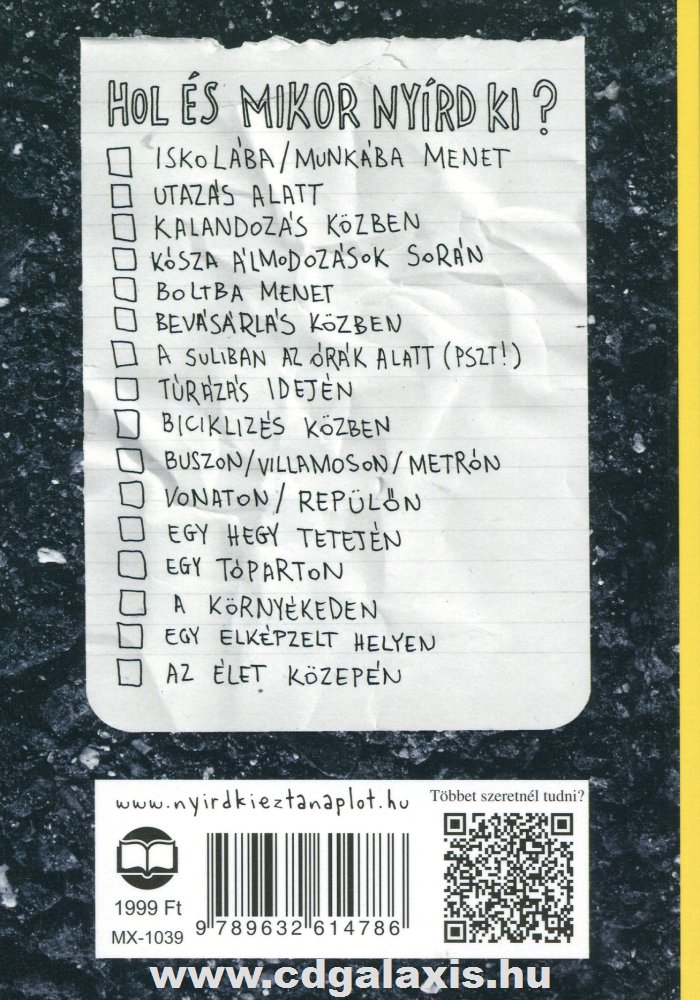 HOL ÉS MIKOR NYÍRD KI?
ISKOLÁBA/MUNKÁBA MENET
UTAZÁS ALATT
KALANDOZÁS KÖZBEN
KÓSZA ÁLMODOZÁSOK SORÁN
BOLTBA MENET
BEVÁSÁRLÁS KÖZBEN
A SULIBAN AZ ÓRÁK ALATT (PSZT!)
TÚRÁZÁS IDEJÉN
BICIKLIZÉS KÖZBEN
BUSZON/VILLAMOSON/METRÓN
VONATON/REPÜLŐN
EGY HEGY TETEJÉN
EGY TÓPARTON
A KÖRNYÉKEDEN
EGY ELKÉPZELT HELYEN
AZ ÉLET KÖZEPÉN
www.nyirdkieztanaplot.hu
Többet szeretnél tudni?
1999 Ft
MX-1039
9 789632 614786
www.cdgalaxis.hu